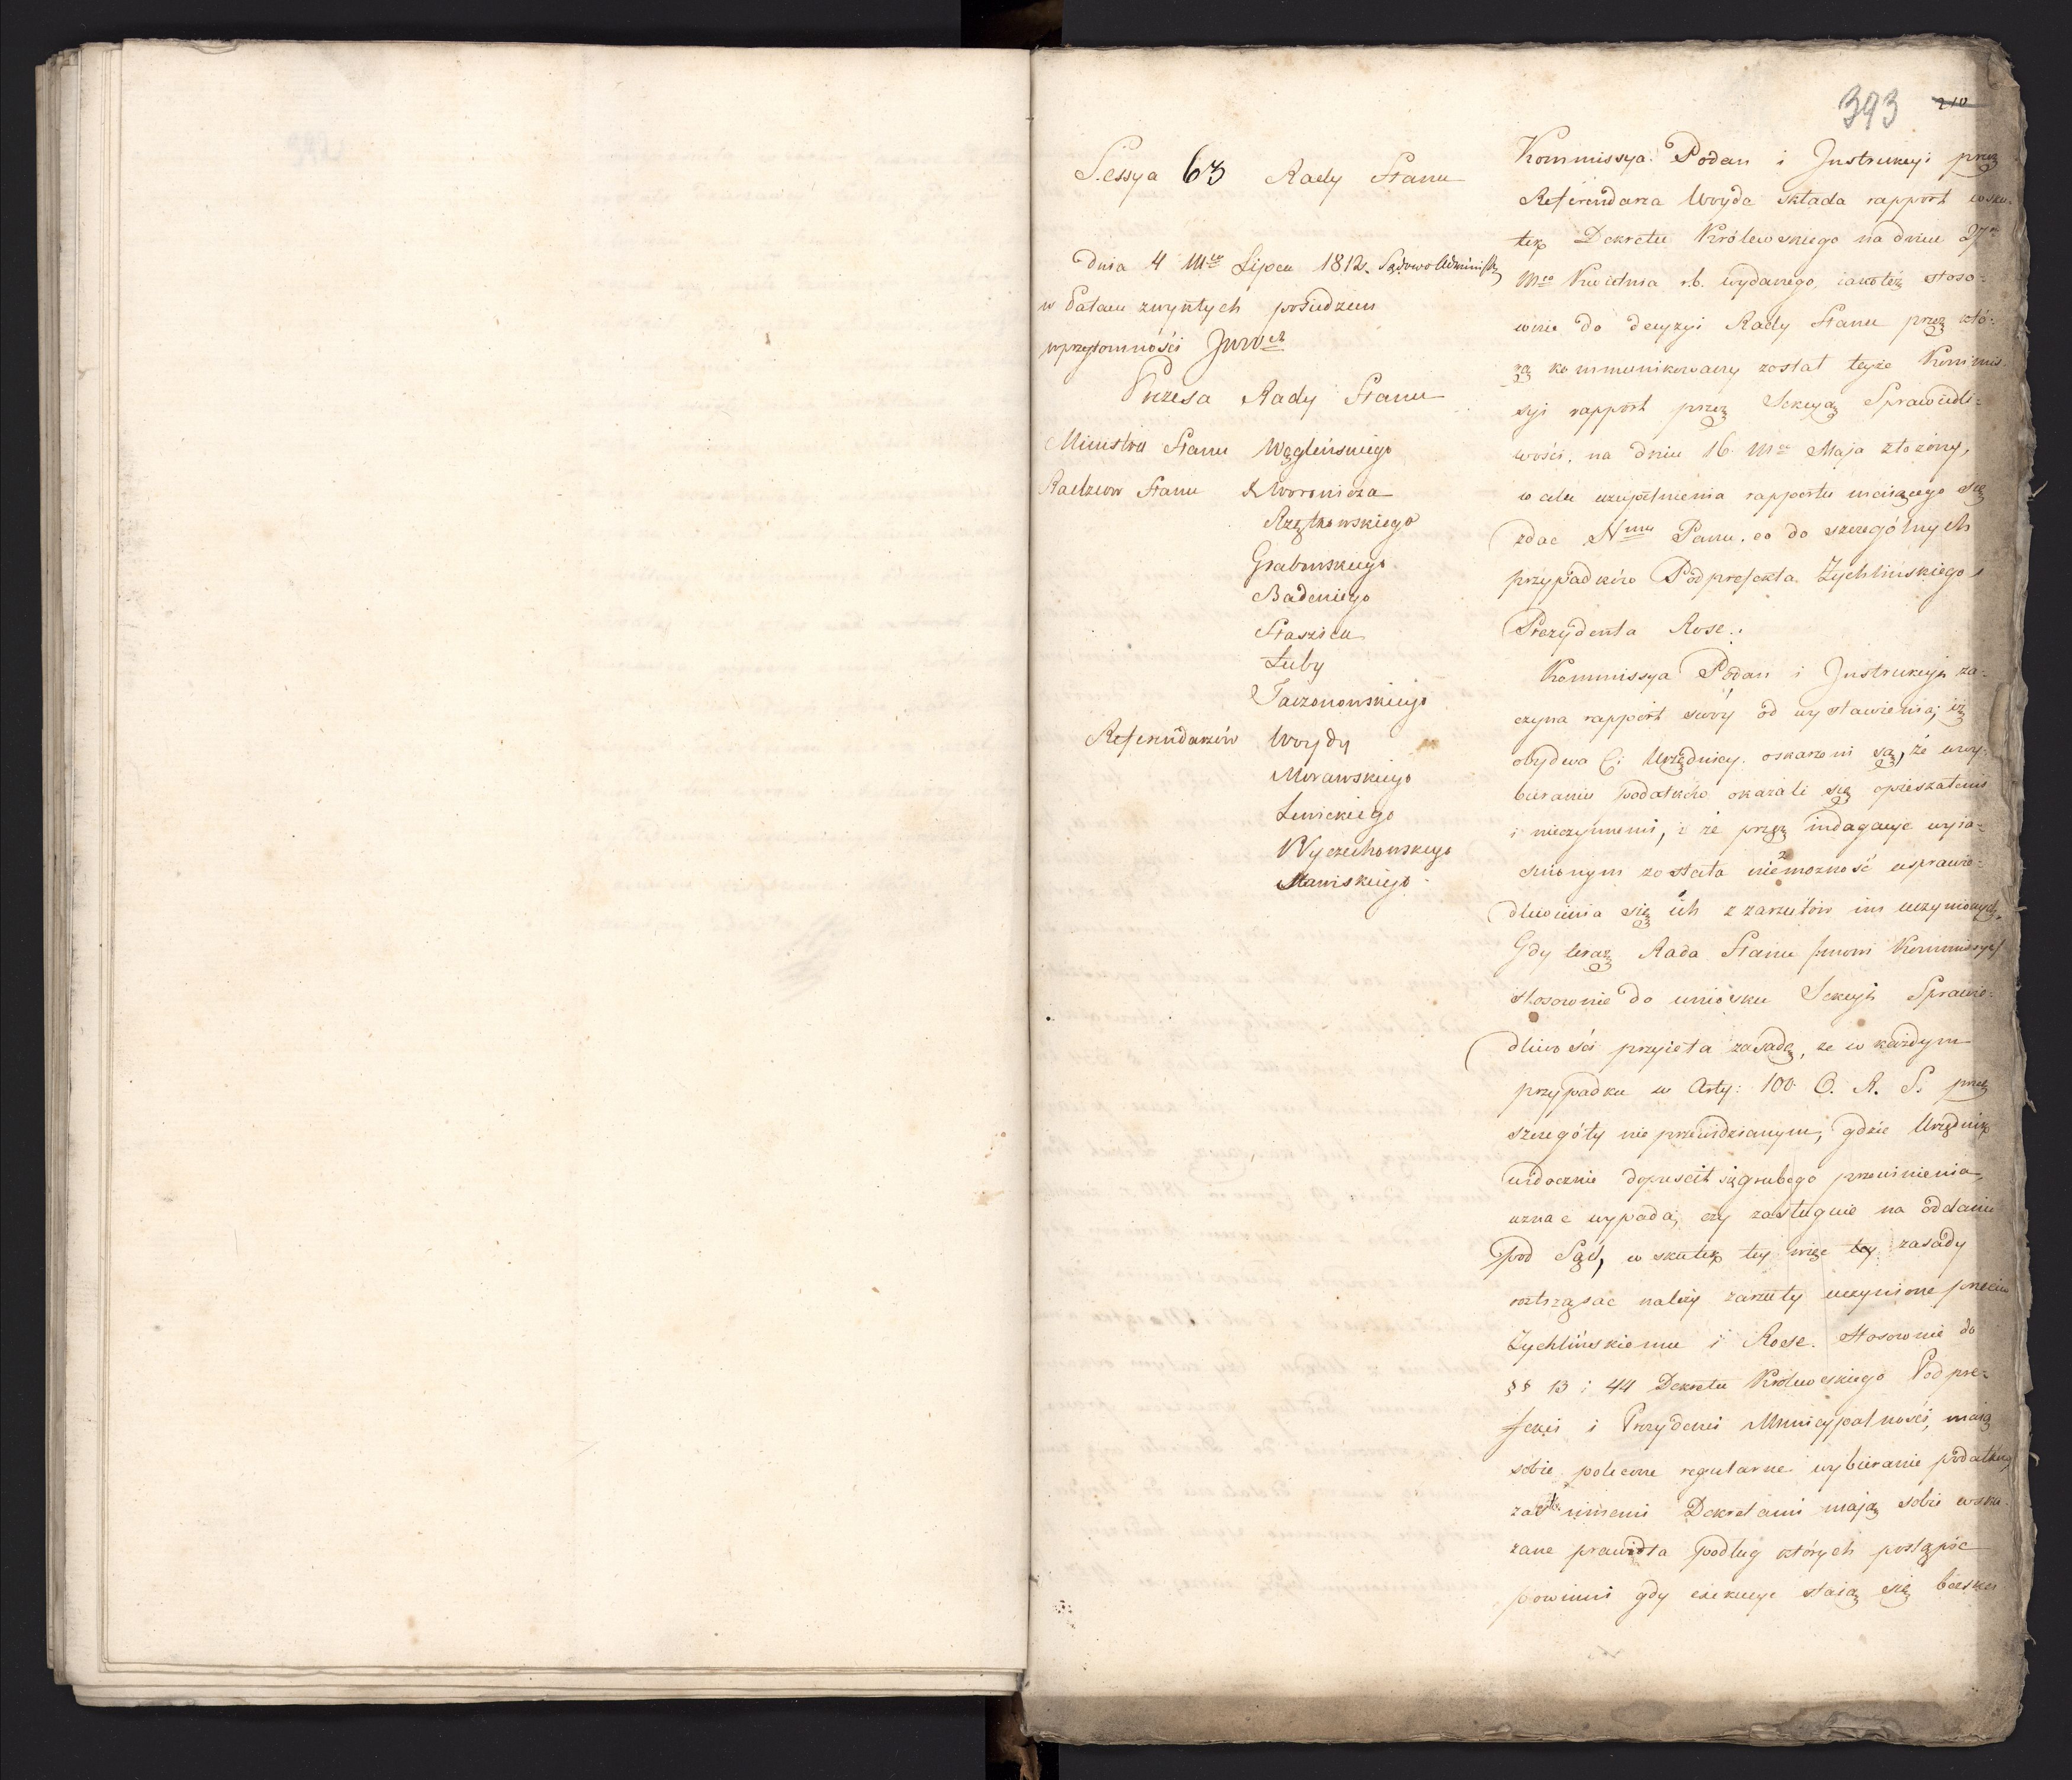 393 210
Sessya 63 Rady Stanu
Dnia 4 Mca Lipca 1812. Sądowo Administr
w Pałacu zwykłych posiedzeń
w przytomności Jww.ch
Prezesa Rady Stanu
Ministra Stanu Węgleńskiego
Radzców Stanu X Woronicza
Rzętkowskiego
Grabowskiego
Badeniego
Staszica
Łuby
Taczanowskiego
Referendarzów Woydy
Morawskiego
Lewickiego
Wyczechowskiego
Stawiskiego
Kommissya Podań i Instrukcyi przez
Referendarza Woyda składa rapport w sku-
tek Dekretu Królewskiego na dniu 27o
Mca Kwietnia r.b. wydanego, iakoteż stoso-
wnie do decyzyi Rady Stanu przez któ-
rą kommunikowany został teyże Kommis
syi rapport przez Sekcyą Sprawiedli-
wości, na dniu 16. Mca Maja złożony,
w celu uzupełnienia rapportu maiącego się
zdac Nmu Panu. co do szczególnych
przypadków Podprefekta Zychlińskiego i
Prezydenta Rose.
Kommissya Podań i Instrukcyi za-
czyna rapport swóy od wystawienia, iż
obydwa Ci Urzędnicy oskarzeni są, że w wy-
bieraniu podatków okazali się opieszałemi
i nieczynnemi, i że przez indagacye wyia-
śnionym została niemożność usprawie-
dliwienia się ich z zarzutów im uczynionych.
Gdy teraz Rada Stanu /: mowi Kommissya :/
stosownie do wniosku Sekcyi Sprawie-
dliwości przyięła zasadę, że w każdym
przypadku w Arty: 100. O. R. S. przez
szczegóły nie przewidzianym, gdzie Urzędnik
widocznie dopuścił się grubego przewinienia,
uznac wypada, czy zasługuie na oddanie
pod Sąd, w skutek tey więc tey zasady
roztrząsac należy zarzuty uczynione przeciw
Zychlińskiemu i Rose. Stosownie do
§§ 13 i 44 Dekretu Królewskiego Podpre-
fekci i Prezydenci Municypalności, maią
sobie polecone regularne wybieranie podatków
zaś innemi Dekretami mają sobie wska-
zane prawidła podług których postąpić
powinni gdy exekucye staią się bezsku